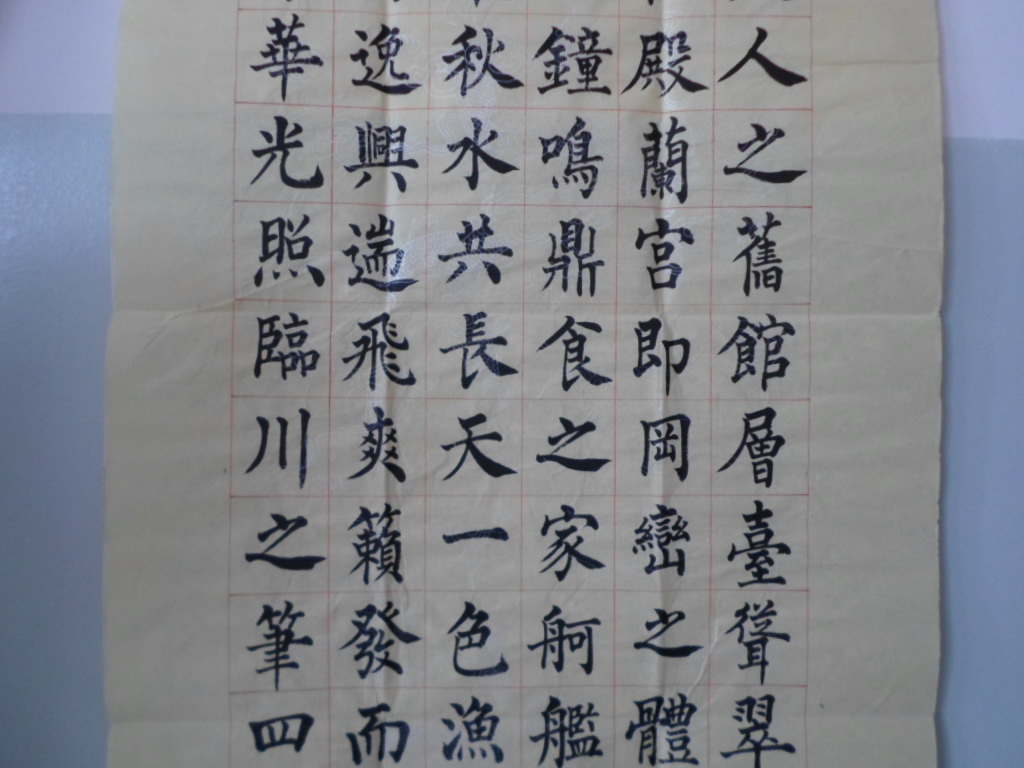 人之舊館層臺聳翠
殿蘭宮即岡巒之體
鐘鳴鼎食之家舸艦
秋水共長天一色漁
逸興遄飛爽籟發而
華光照臨川之筆四